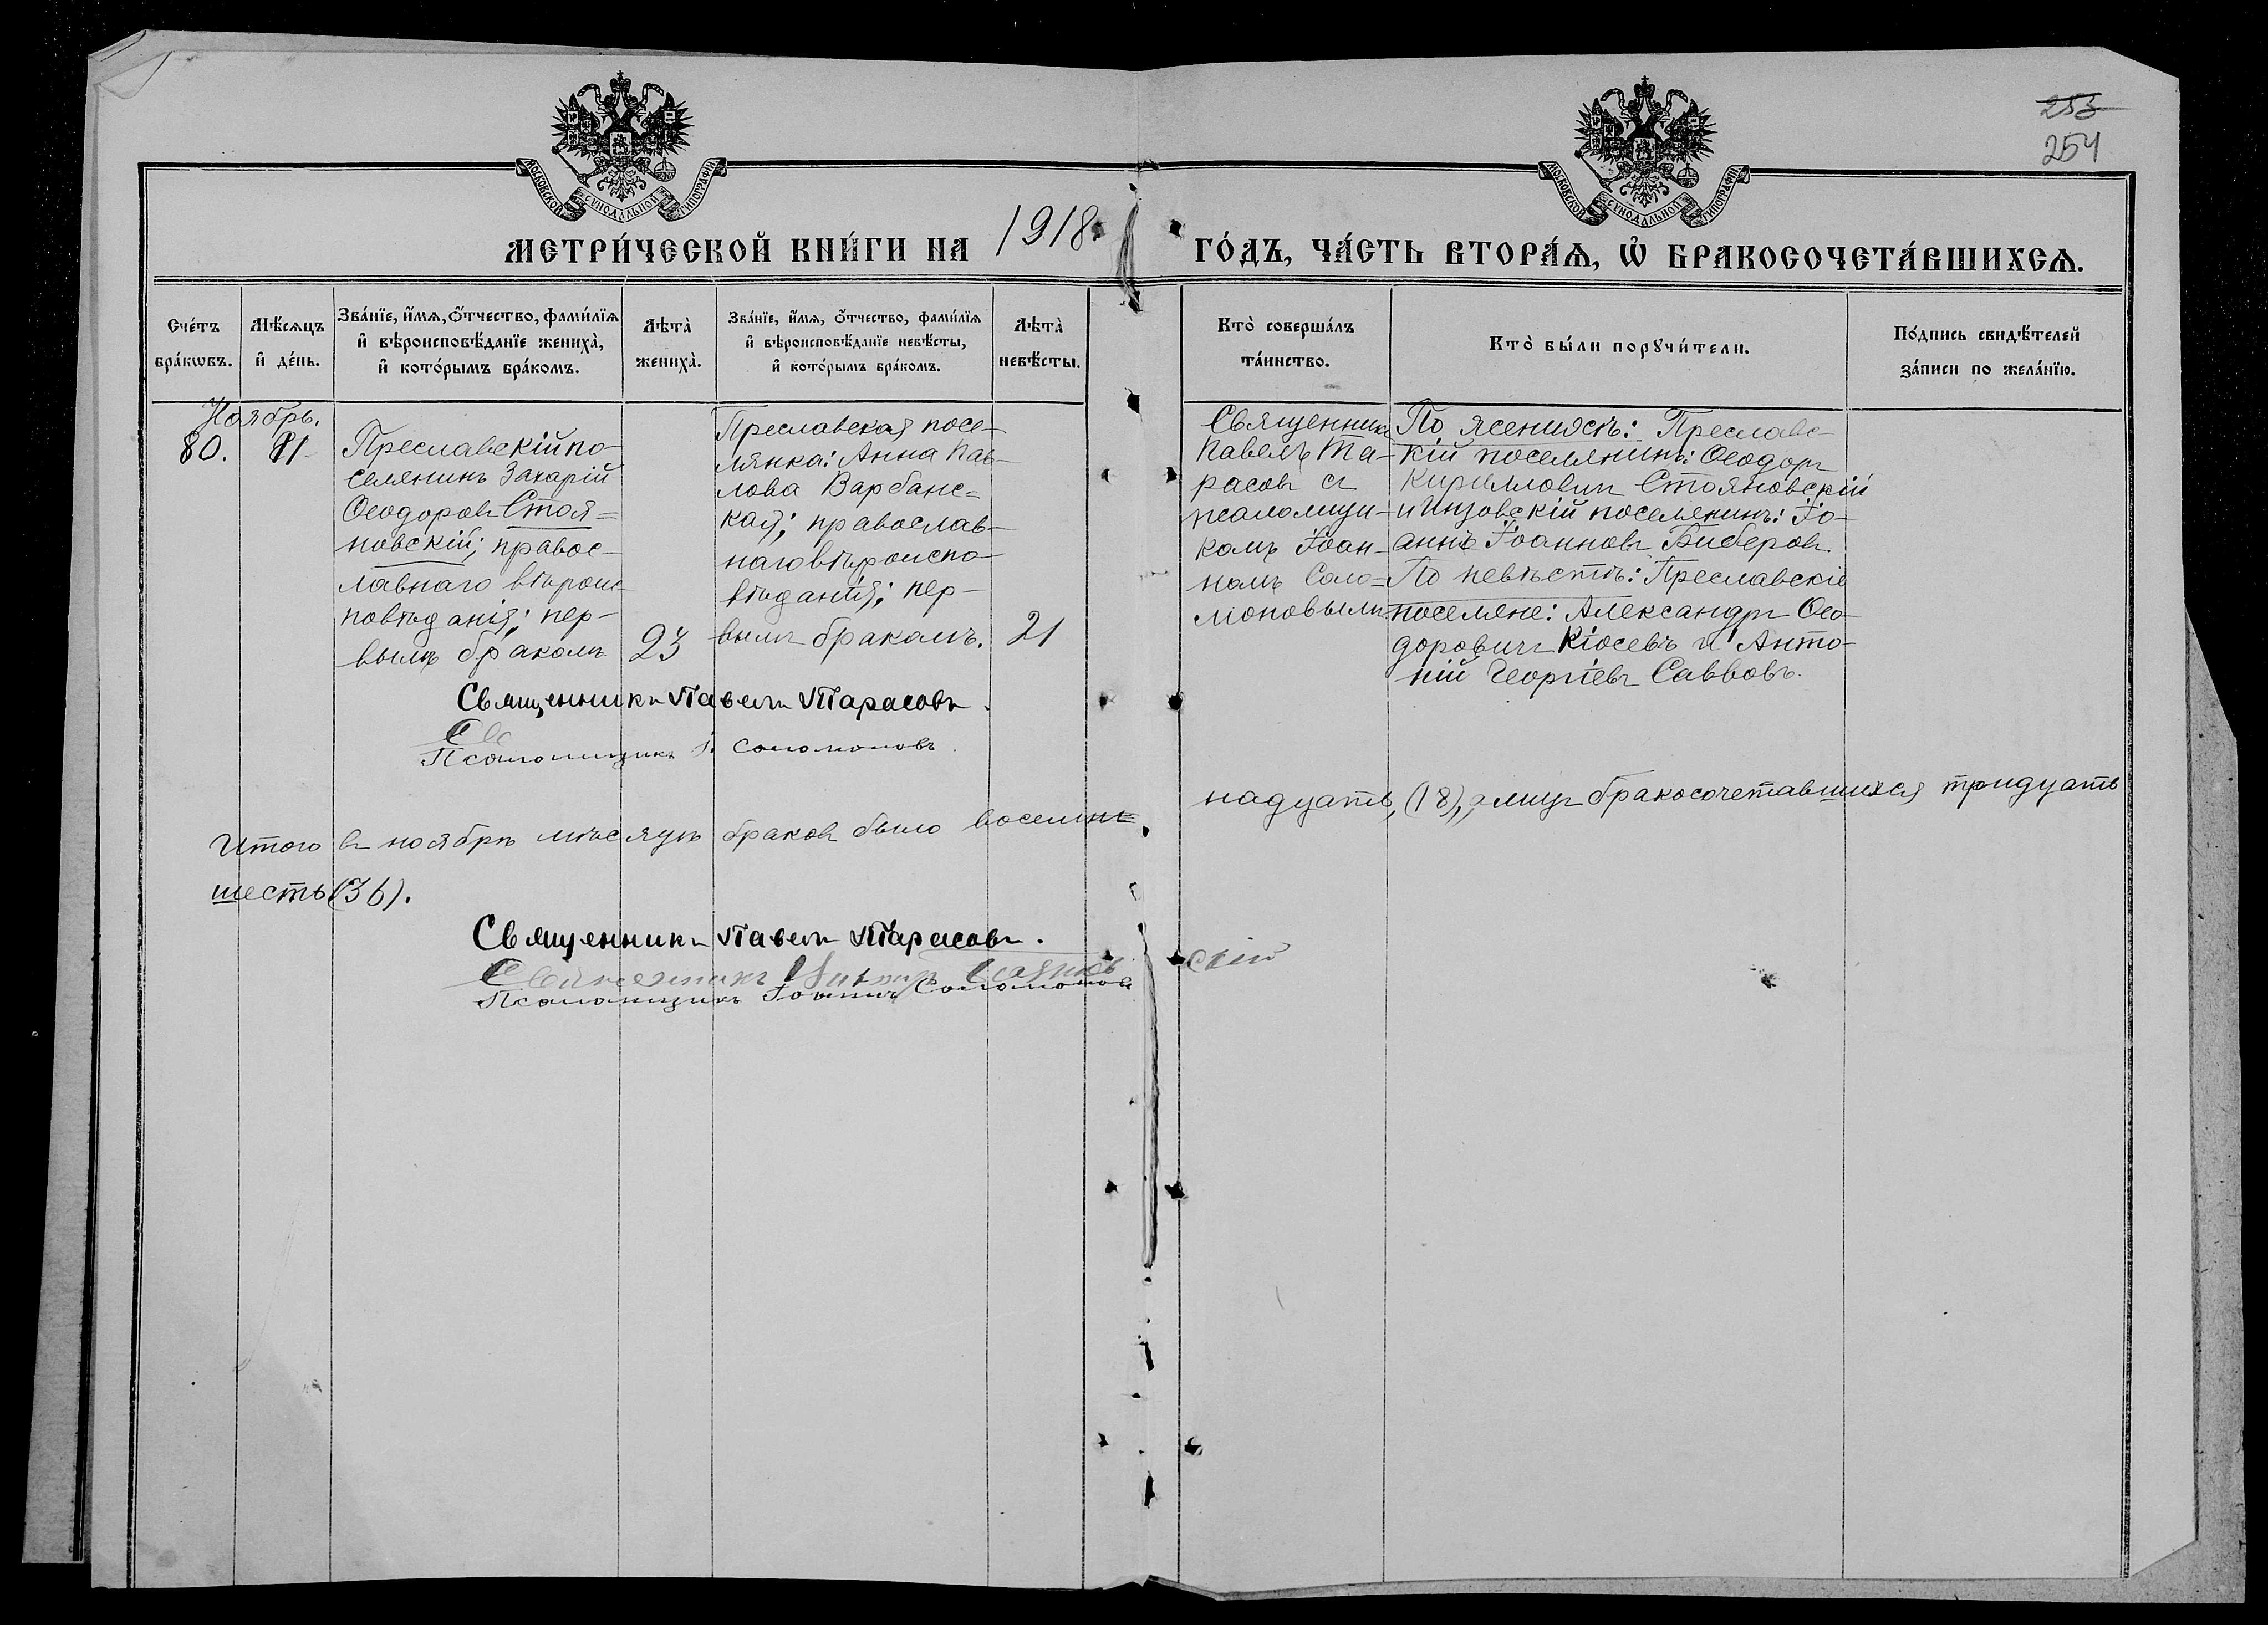 253
254
МОСКОВСКОЙ СУНОДАЛЬНОЙ ТИПОГРАФІИ
МОСКОВСКОЙ СУНОДАЛЬНОЙ ТИПОГРАФІИ
МЕТРИ́ЧЕСКОЙ КНИ́ГИ НА 1918 ГО́ДЪ, ЧА́СТЬ ВТОРА́Ѧ, Ѽ БРАКОСОЧЕТА́ВШИХСѦ.
Сче́тъ
бра́кѡвъ.
Мѣ́сѧцъ
и҆ де́нь.
Зва́нїе, и҆́мѧ, ѻ҆́тчество, фами́лїѧ
и҆ вѣроисповѣ́данїе жениха̀,
и҆ кото́рымъ бра́комъ.
Лѣта̀
жениха̀.
Зва́нїе, и҆́мѧ, ѻ҆́тчество, фами́лїѧ
и҆ вѣроисповѣ́данїе невѣ́сты,
и҆ кото́рымъ бра́комъ.
Лѣта̀
невѣ́сты.
Кто̀ соверша́лъ
та́инство.
Кто̀ бы́ли порꙋчи́тели.
По́дпись свидѣ́телей
за́писи по жела́нїю.
Ноябрь.
80.
11
Преславскій по-
селянинъ Захарій
Ѳеодоровъ Стоя=
новскій; правос-
лавнаго вѣроис-
повѣданія; пер-
вымъ бракомъ
23
Преславская посе-
лянка: Анна Пав-
лова Варбанс=
кая; православ-
наго вѣроиспо-
вѣданія; пер-
вымъ бракомъ.
21
Священникъ
Павелъ Та-
расовъ съ
псаломщи-
комъ Іоан-
номъ Соло=
моновымъ
По женихѣ: Преславс-
кій поселянинъ: Ѳеодоръ
Кирилловичъ Стояновскій
и Инзовскій поселянинъ: Іо-
аннъ Іоанновъ Биберовъ.
По невѣстѣ: Преславскіе
поселяне: Александръ Ѳео-
доровичъ Кіосевъ и Анто-
ній Георгіевъ Саввовъ.
Священникъ Павелъ Тарасовъ.
Псаломщикъ І. Соломоновъ.
Итого въ ноябрѣ мѣсяцѣ браковъ было восемь=
надцать, (18), а лицъ бракосочетавшихся тридцать
шесть (36).
Священникъ Павелъ Тарасовъ.
Священникъ
скій
Псаломщикъ Іоаннъ Соломоновъ